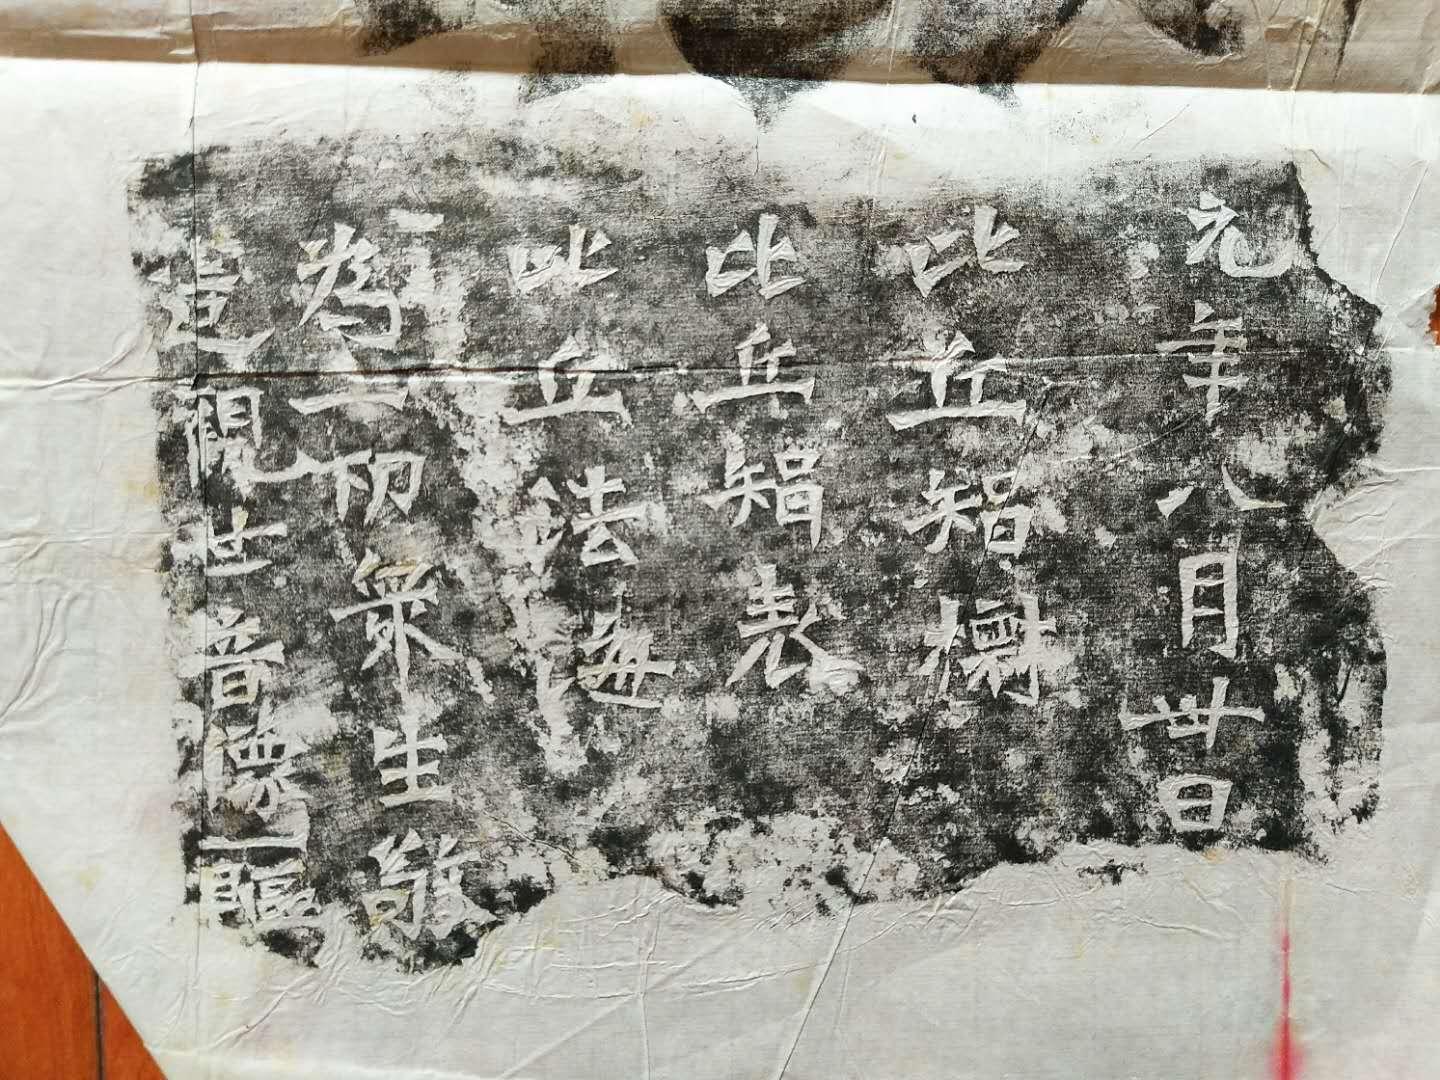 元年八月卅日
比丘智
比丘智表
比丘法海
為一切眾生敬
造觀世音像一軀